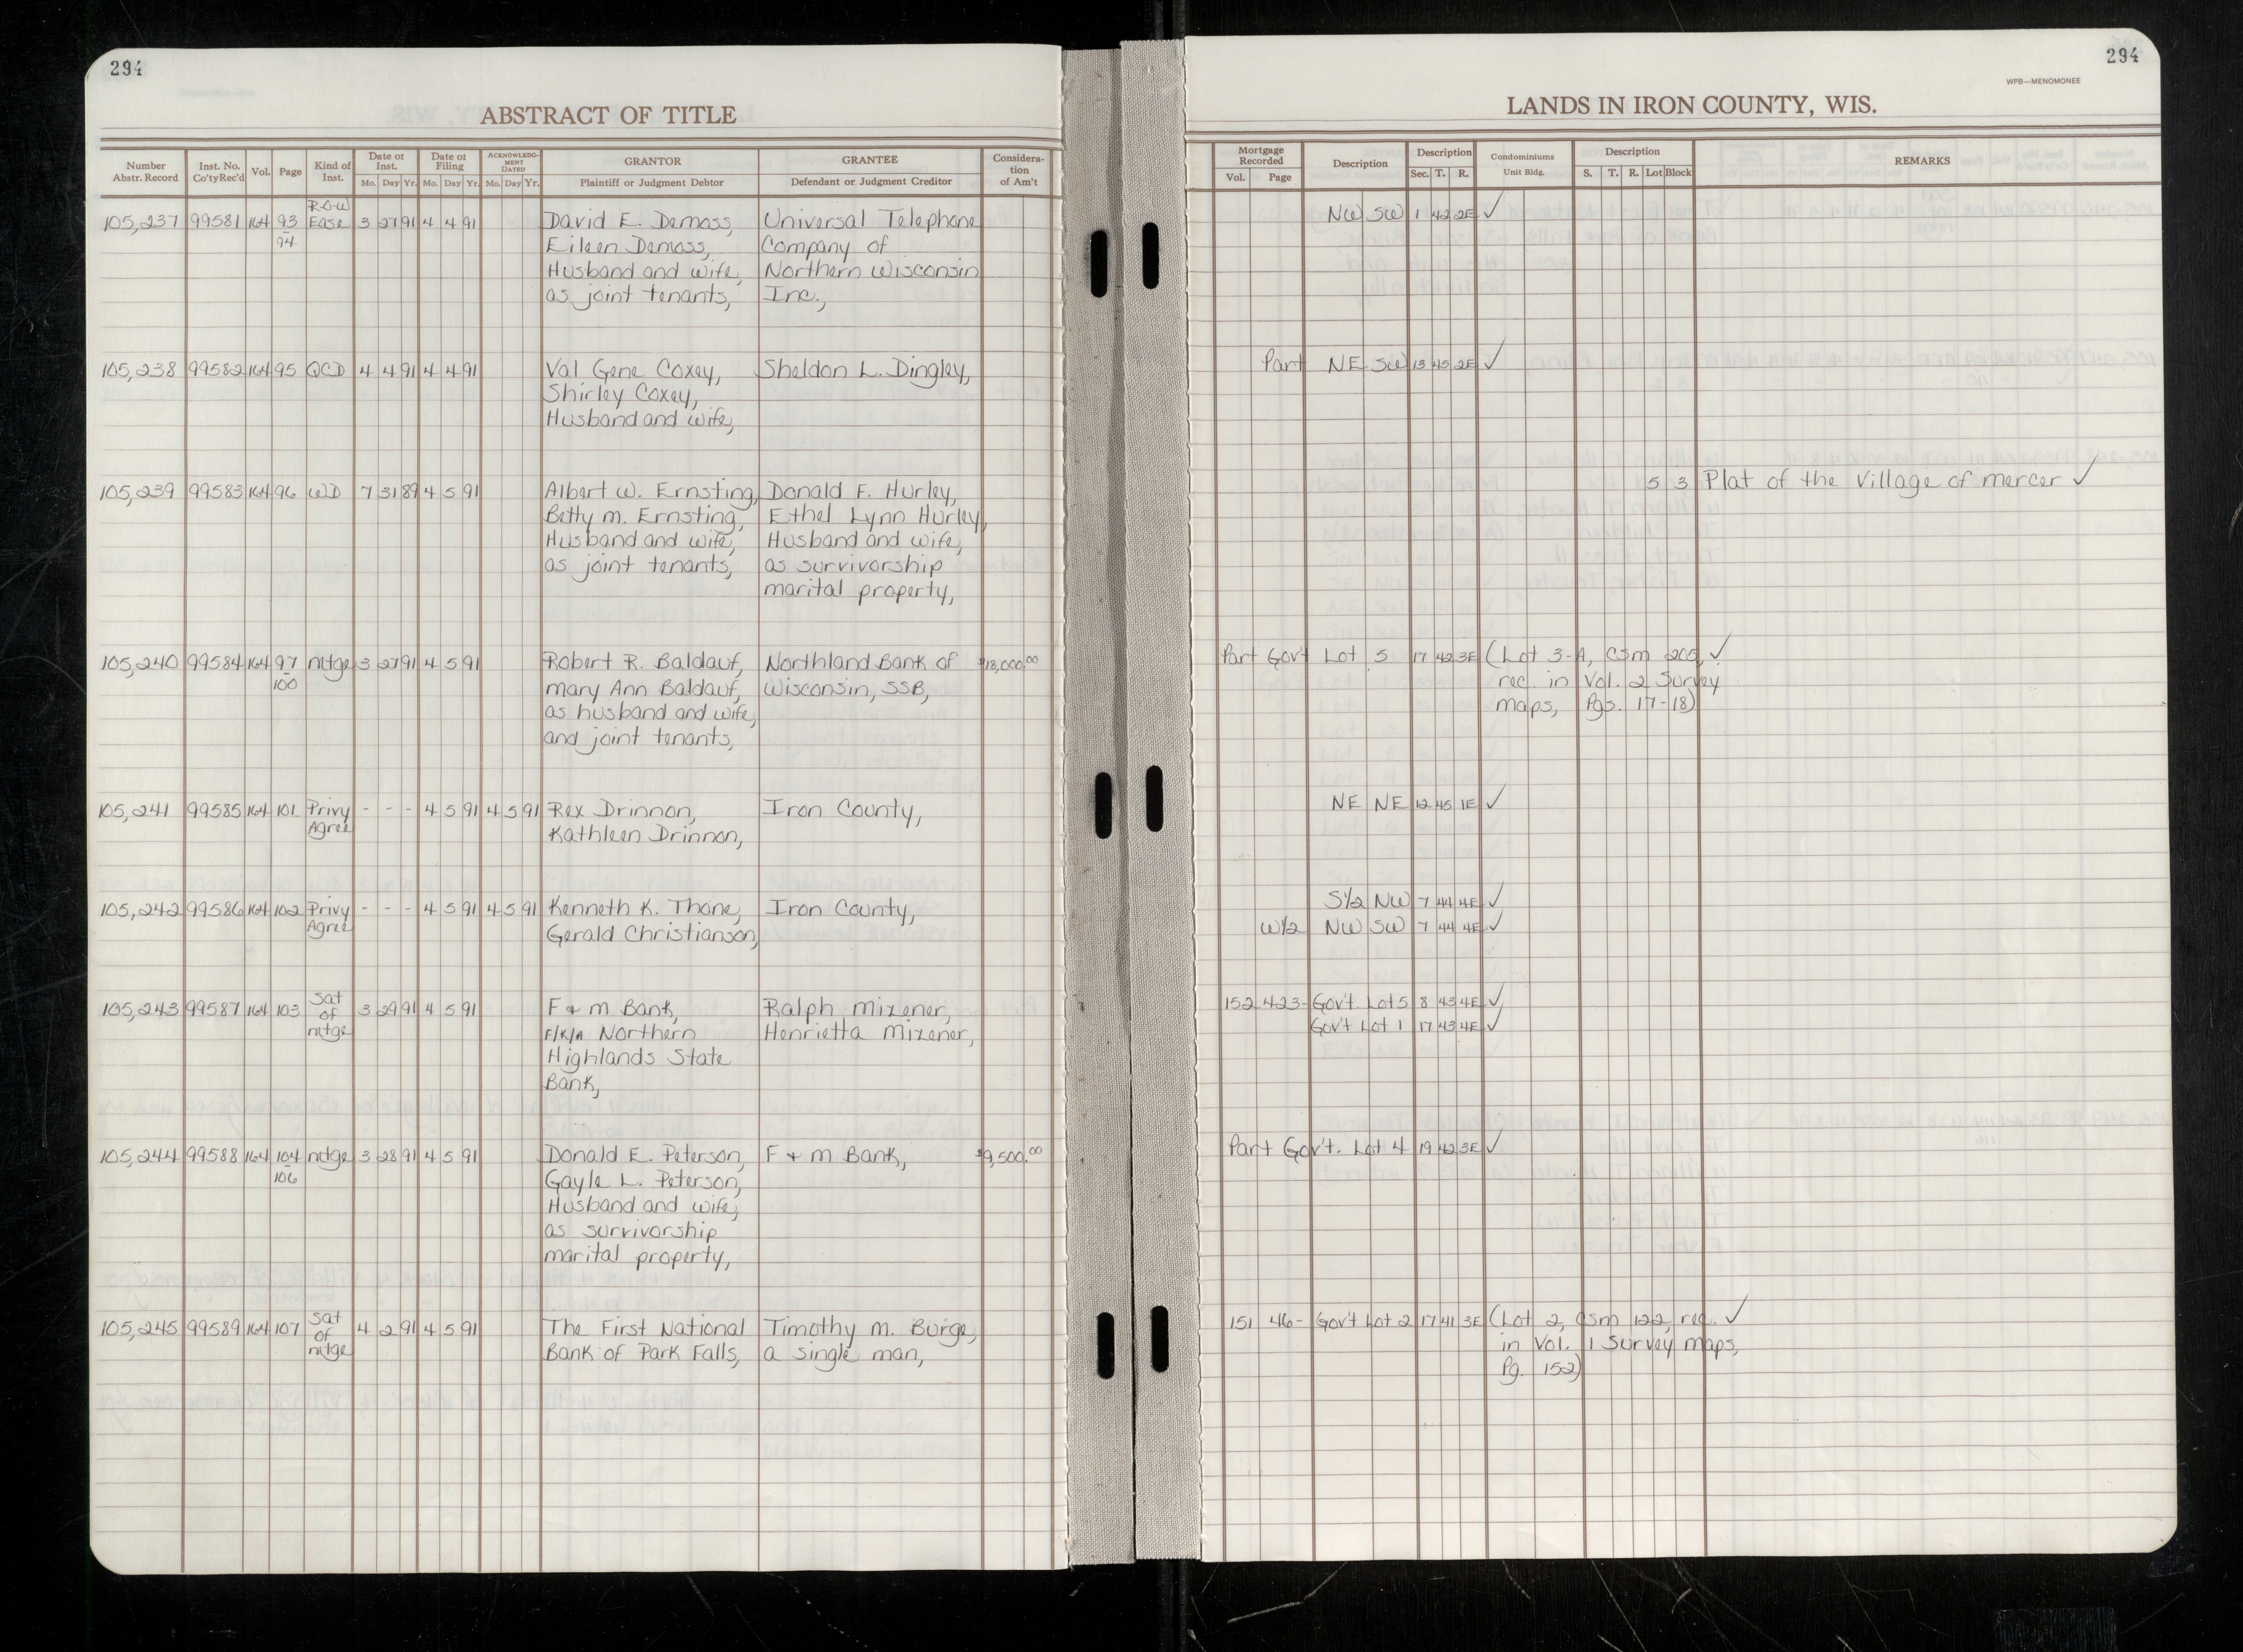 294
ABSTRACT OF TITLE
Number Abstr. Record | Inst. No. Co'ty Rec'd | Vol. | Page | Kind of Inst. | Date of Inst. Mo. Day Yr. | Date of Filing Mo. Day Yr. | ACKNOWLEDGMENT DATED Mo. Day Yr. | GRANTOR Plaintiff or Judgment Debtor | GRANTEE Defendant or Judgment Creditor | Consideration of Am't
R-O-W
105,237 99581 164 93 Ease 3 27 91 4 4 91 David E. Demass, Universal Telephone
94 Eileen Demass, Company of
Husband and wife, Northern Wisconsin
as joint tenants, Inc.,
105,238 99582 164 95 QCD 4 4 91 4 4 91 Val Gene Coxey, Sheldon L. Dingley,
Shirley Coxey,
Husband and wife,
105,239 99583 164 96 WD 7 31 89 4 5 91 Albert W. Ernsting, Donald F. Hurley,
Betty M. Ernsting, Ethel Lynn Hurley,
Husband and wife, Husband and wife,
as joint tenants, as survivorship
marital property,
105,240 99584 164 97 mtge 3 27 91 4 5 91 Robert R. Baldauf, Northland Bank of $18,000.00
100 Mary Ann Baldauf, Wisconsin, SSB,
as husband and wife,
and joint tenants,
105,241 99585 164 101 Privy - - - 4 5 91 4 5 91 Rex Drinnon, Iron County,
Agree Kathleen Drinnon,
105,242 99586 164 102 Privy - - - 4 5 91 4 5 91 Kenneth K. Thone, Iron County,
Agree Gerald Christianson,
Sat
105,243 99587 164 103 of 3 29 91 4 5 91 F & M Bank, Ralph Mizener,
mtge F/K/A Northern Henrietta Mizener,
Highlands State
Bank,
105,244 99588 164 104 mtge 3 28 91 4 5 91 Donald E. Peterson, F & M Bank, $9,500.00
106 Gayle L. Peterson,
Husband and wife,
as survivorship
marital property,
Sat
105,245 99589 164 107 of 4 2 91 4 5 91 The First National Timothy M. Burge,
mtge Bank of Park Falls, a single man,
294
WPB—MENOMONEE
LANDS IN IRON COUNTY, WIS.
Mortgage Recorded Vol. Page | Description | Description Sec. T. R. | Condominiums Unit Bldg. | Description S. T. R. Lot Block | REMARKS
NW SW 1 42 2E ✓
Part NE SW 13 45 2E ✓
5 3 Plat of the Village of Mercer ✓
Part Gov't Lot 5 17 42 3E (Lot 3-A, CSM 205, ✓
rec. in Vol. 2 Survey
maps, Pgs. 17-18)
NE NE 12 45 1E ✓
S½ NW 7 44 4E ✓
W½ NW SW 7 44 4E ✓
152 423- Gov't. Lot 5 8 43 4E ✓
Gov't Lot 1 17 43 4E ✓
Part Gov't. Lot 4 19 42 3E ✓
151 46- Gov't Lot 2 17 41 3E (Lot 2, CSM 122, rec. ✓
in Vol. 1 Survey maps,
Pg. 152)